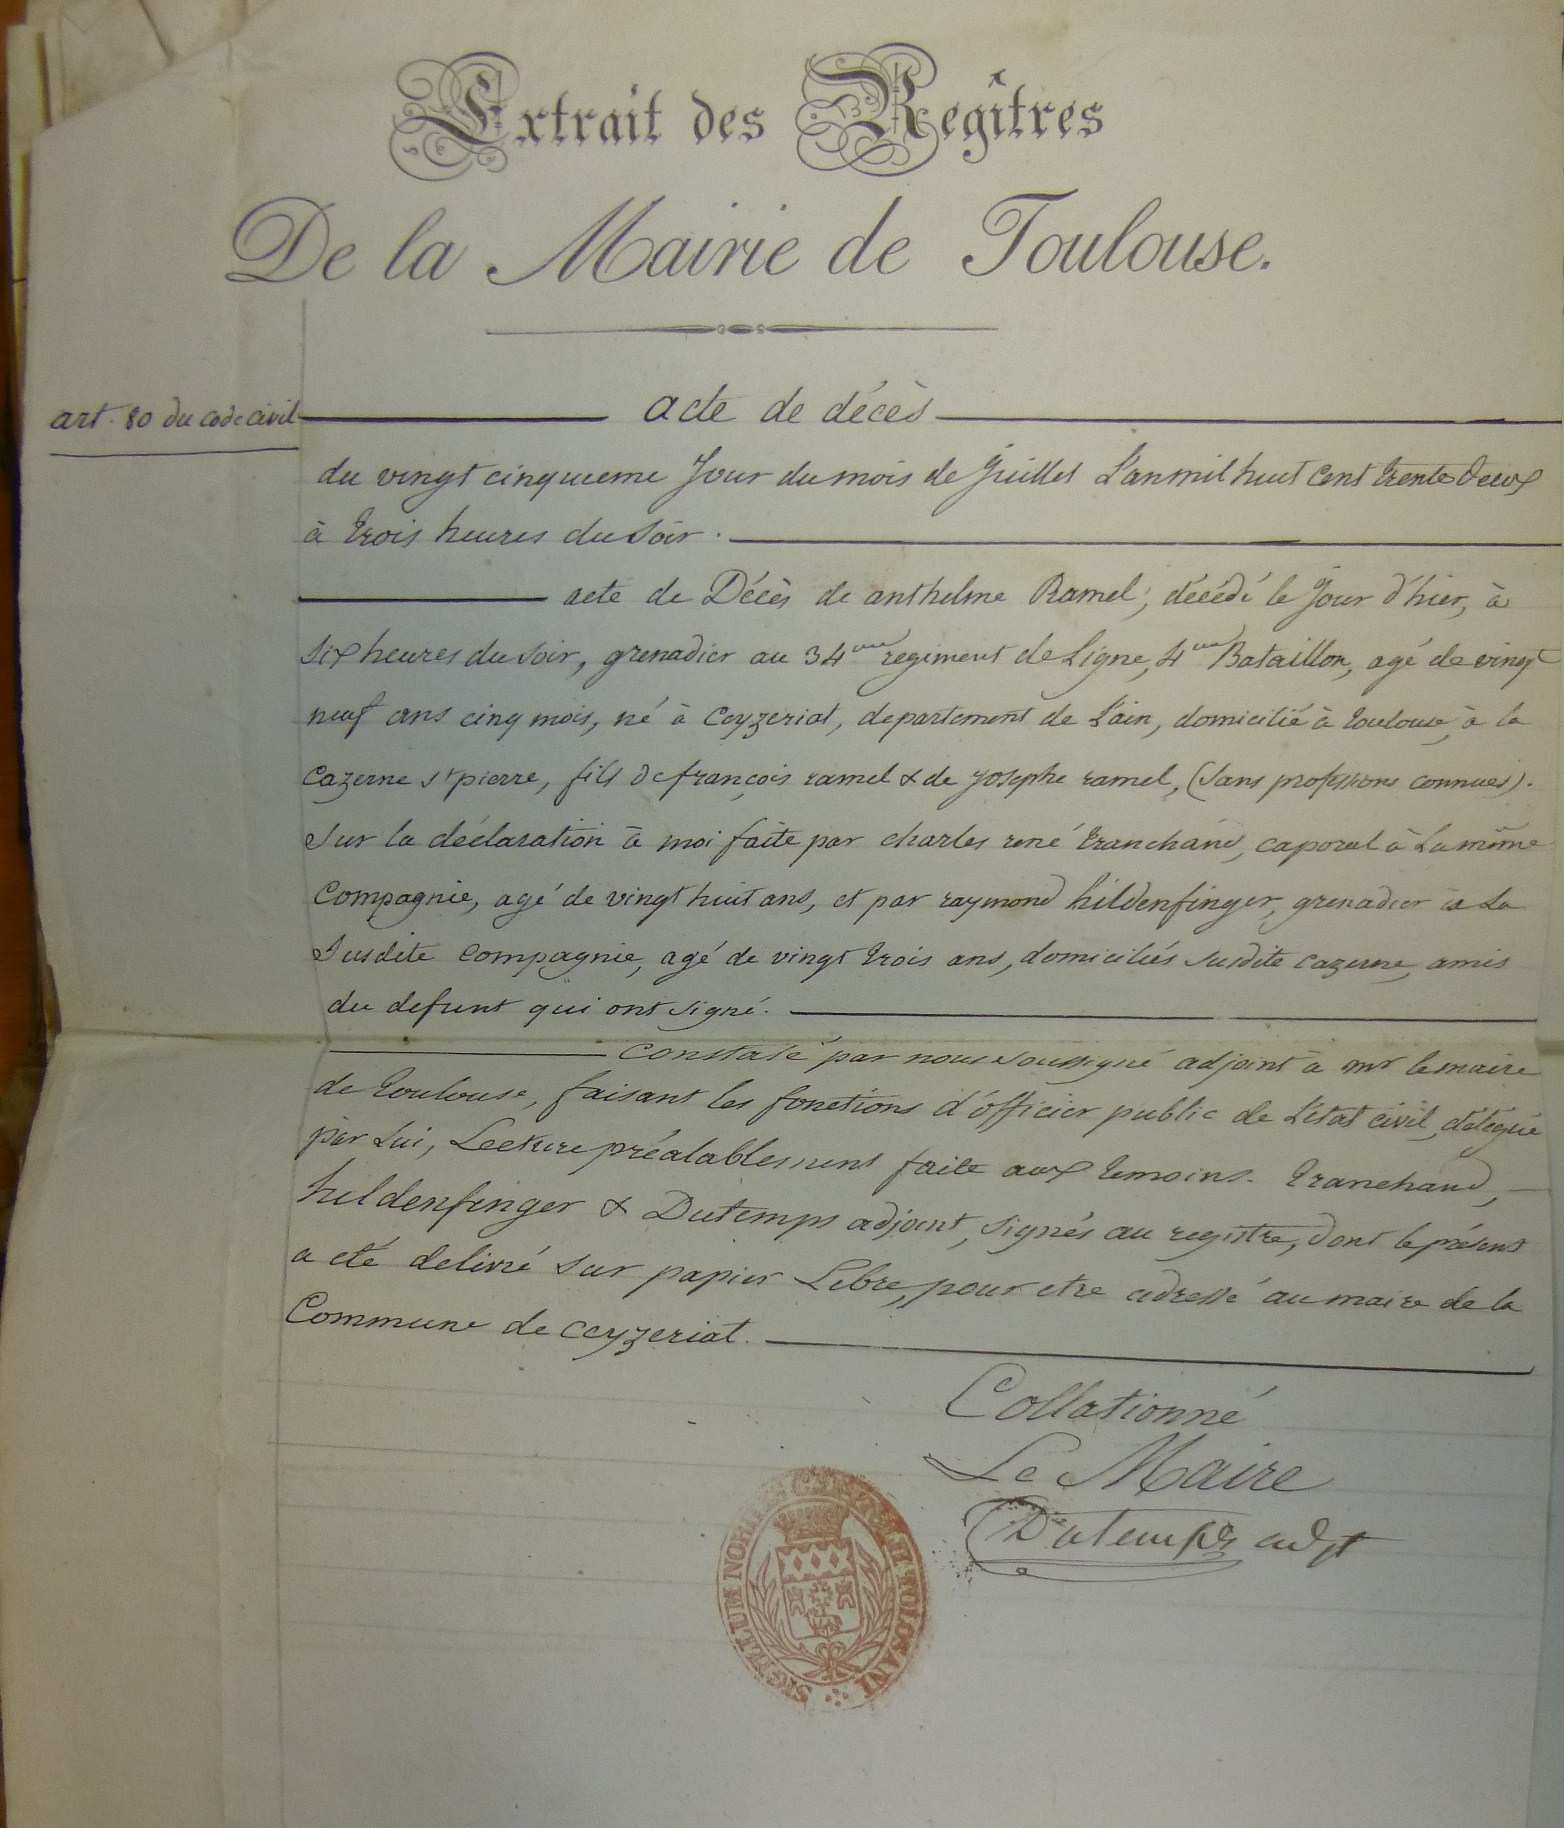 Extrait des Regîtres
De la Mairie de Toulouse.
art. 80 du code civil
acte de décès
du vingt cinquieme Jour du mois de Juillet L'an mil huit Cent trente deux
à trois heures du soir.
acte de Décès de anthelme Ramel, décédé le Jour d'hier, à
six heures du soir, grenadier au 34me regiment de Ligne, 4me Bataillon, agé de vingt
neuf ans cinq mois, né à Ceyzeriat, departement de L'ain, domicilié à toulouse, à la
Cazerne st pierre, fils de françois ramel & de josephe ramel, (sans professions connues).
Sur la déclaration à moi faite par charles rené tranchand, caporal à La même
Compagnie, agé de vingt huit ans, et par raymond hildenfinger, grenadier à La
Susdite Compagnie, agé de vingt trois ans, domiciliés susdite cazerne, amis
du defunt qui ont signé.
Constaté par nous soussigné adjoint à mr le maire
de toulouse, faisant les fonctions d'officier public de L'état civil, délégué
par Lui, Lecture préalablement faite aux temoins. tranchand,
hildenfinger & Dutemps adjoint, signés au registre, dont le présent
a été delivré sur papier Libre, pour etre adressé au maire de la
Commune de Ceyzeriat.
Collationné
Le Maire
Dutemps adjt
SIGILLUM TOLOSANI